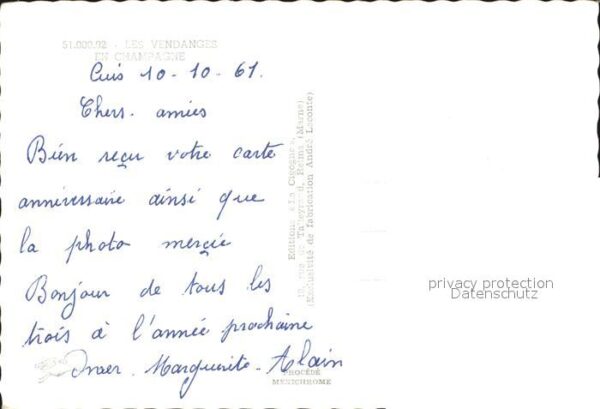 51.000.92 - LES VENDANGES
EN CHAMPAGNE
Cuis 10-10-61.
Chers. amies
Bien reçu votre carte
anniversaire ainsi que
la photo merçie
Bonjour de tous les
trois à l'année prochaine
Marguerite. Alain
Editions "La Cigogne",
rue de Talleyrand, Reims (Marne)
(Exclusivité de fabrication André Leconte)
PROCÉDÉ
MEXICHROME
privacy protection
Datenschutz